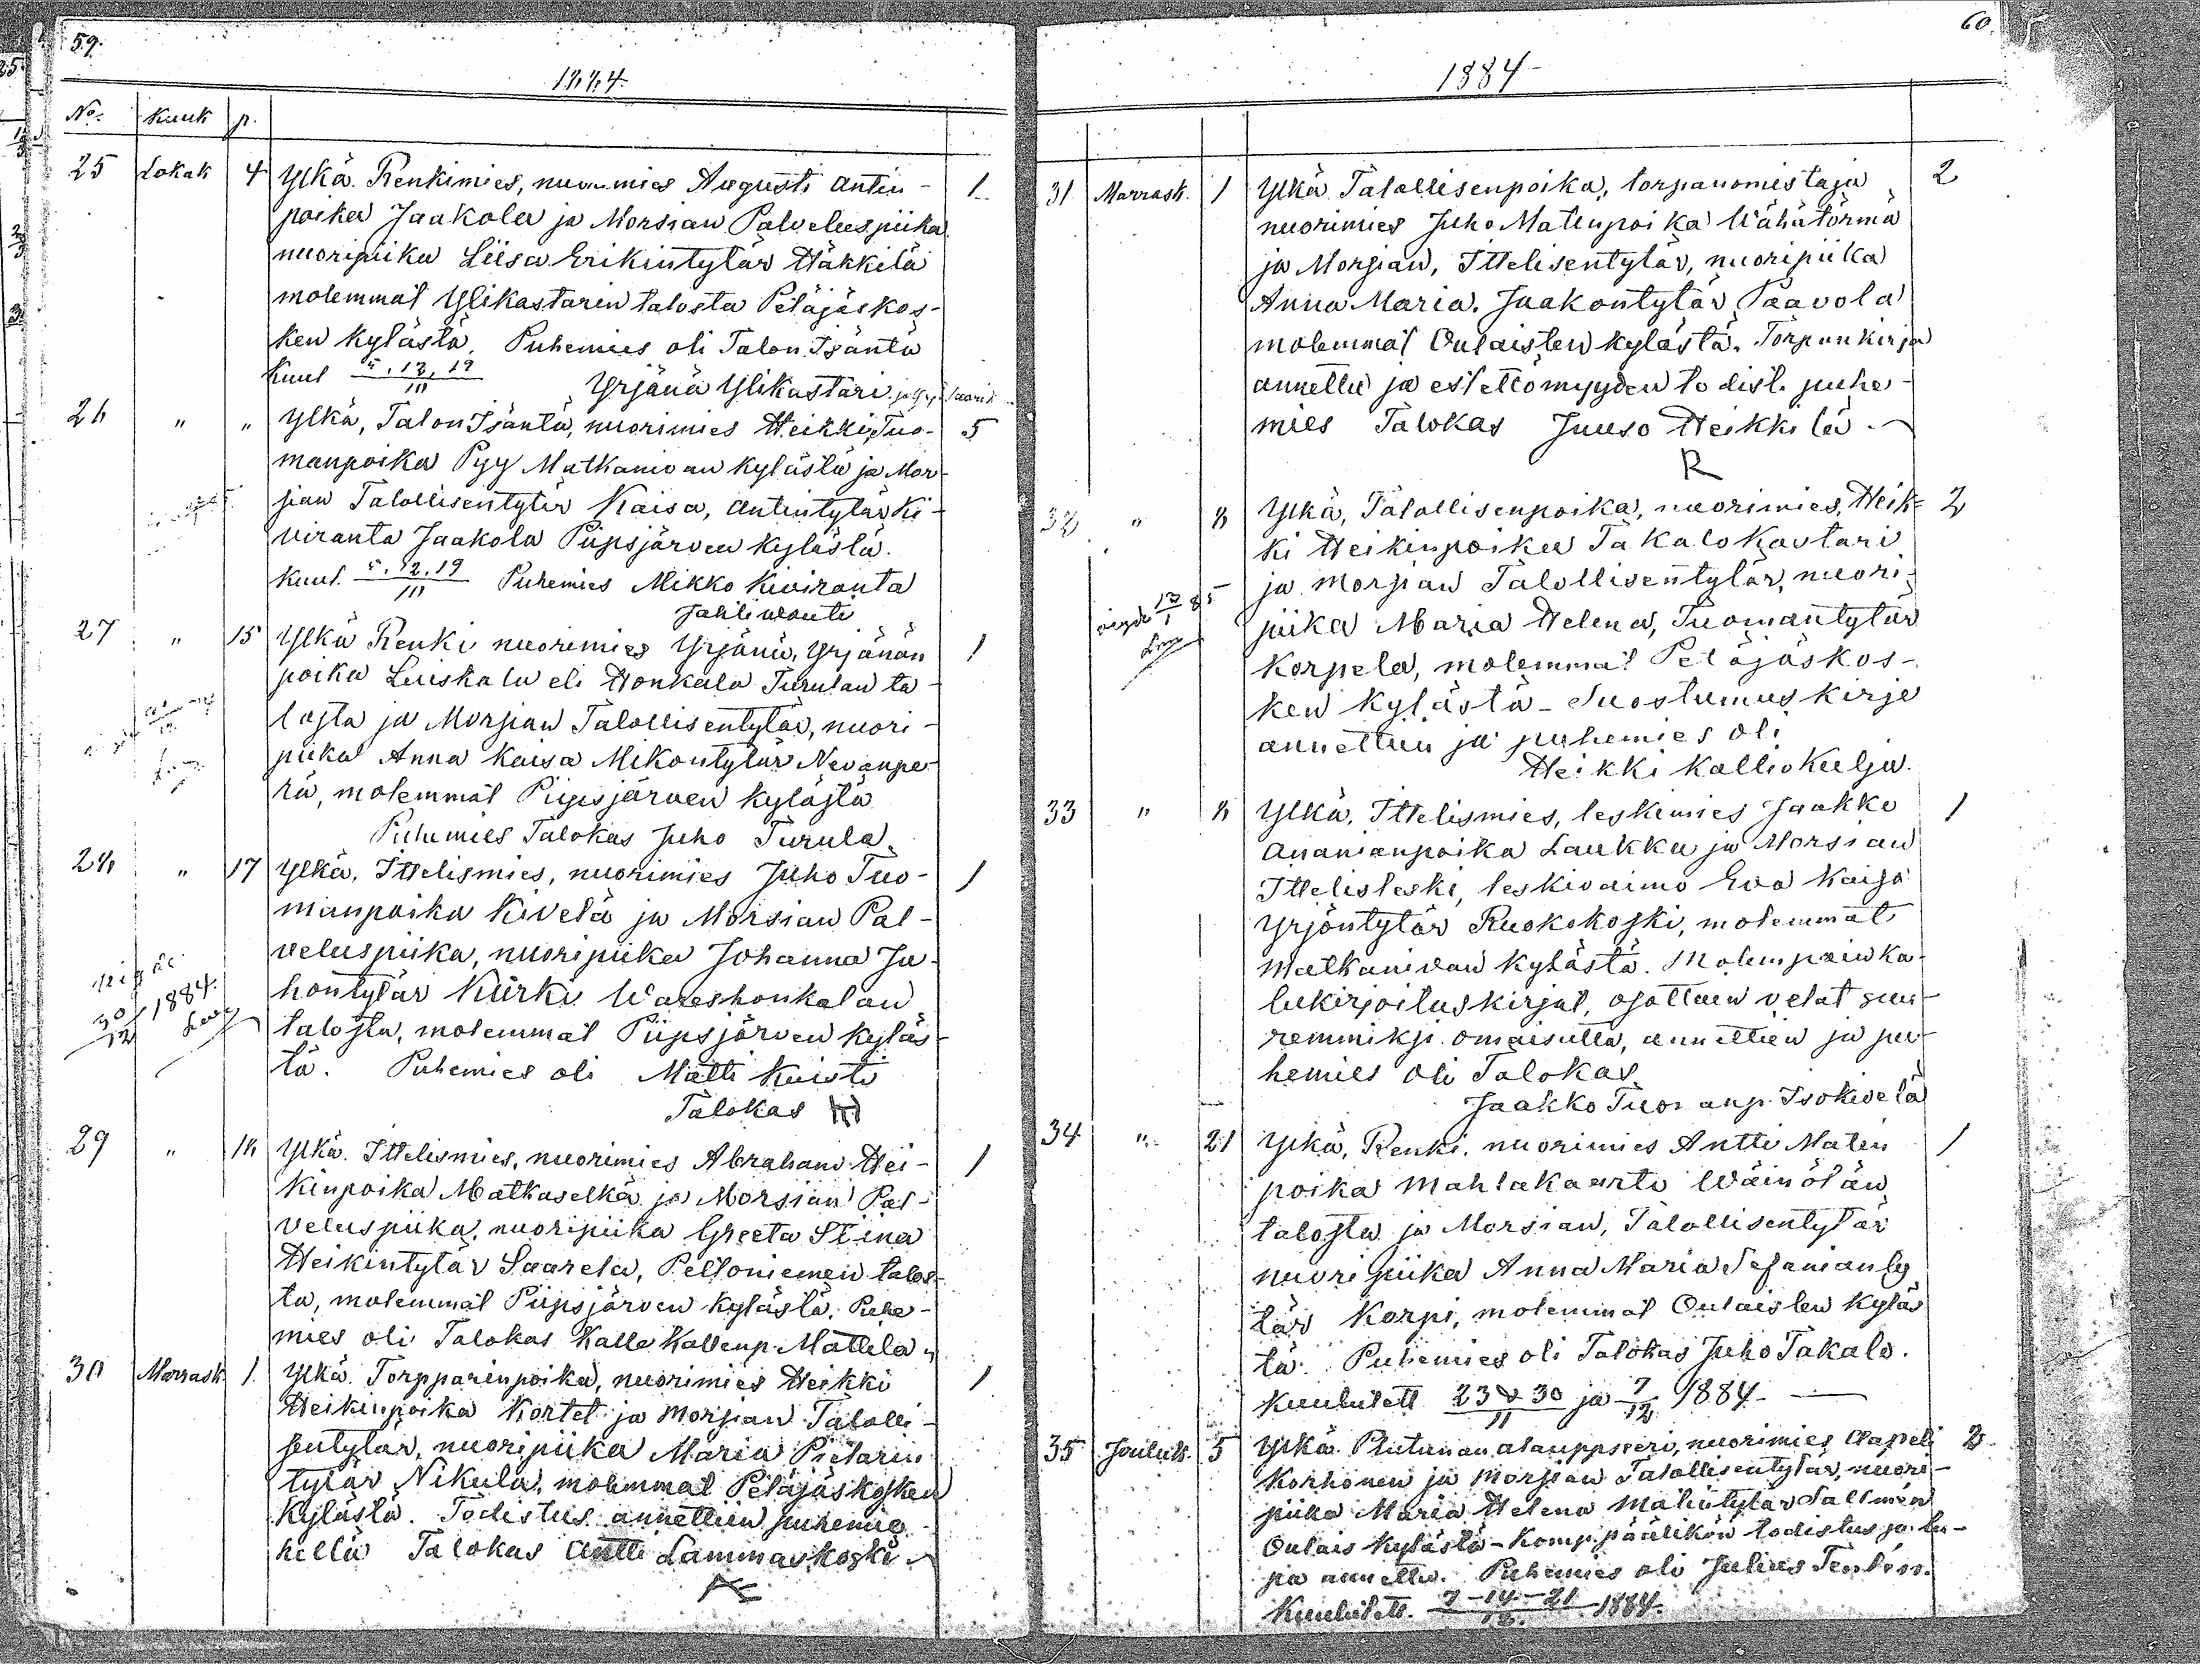 59.
1884.
No. Kuuk p.
25 Lokak 4 Ylkä. Renkimies, nuorimies Augusti Antin- 1
poika Jaakola ja Morsian Palveluspiika
nuoripiika Liisa Erikintytär Häkkilä
molemmat Ylikastarin talosta Petäjäskos-
ken kylästä. Puhemies oli Talon Isäntä
Kuul 5.12.19 Yrjänä Ylikastari
26 " " Ylkä, Talon Isäntä, nuorimies Heikki Tuo- 5
manpoika Pyy Matkanivan kylästä ja Mor-
sian Talollisentytär Kaisa, Antintytär Ki-
viranta Jaakola Piipsjärven kylästä.
Kuul. 5.12.19 Puhemies Mikko Kiviranta
Jahtivouti
27 " 15 Ylkä Renki nuorimies Yrjänä, Yrjänän 1
poika Luiskala eli Honkala Turulan ta-
losta ja Morsian Talollisentytär, nuori-
piika Anna Kaisa Mikontytär Nevanpe-
rä, molemmat Piipsjärven kylästä
Puhemies Talokas Juho Turula.
28 " 17 Ylkä. Ittelismies, nuorimies Juho Tuo- 1
manpoika Kivelä ja Morsian Pal-
veluspiika, nuoripiika Johanna Ju-
hontytär Kürki Wareshonkalan
talosta, molemmat Piipsjärven kyläs-
tä. Puhemies oli Matti Kuisti
Talokas
30/12 1884.
29 " 18 Ylkä. Ittelismies, nuorimies Abraham Hei- 1
kinpoika Matkaselkä ja Morsian Pal-
veluspiika, nuoripiika Greeta Stiina
Heikintytär Saarela, Peltoniemen talos-
ta, molemmat Piipsjärven kylästä. Puhe-
mies oli Talokas Kalle Kallenp. Mattela
30 Marrask. 1. Ylkä. Torpparinpoika, nuorimies Heikki 1
Heikinpoika Kortet ja Morsian Talolli-
sentytär, nuoripiika Maria Pietarin
tytär Nikula, molemmat Petäjäskosken
kylästä. Todistus annettiin puhemie-
hellä Talokas Antti Lammaskoski
60.
1884
31 Marrask. 1 Ylkä Talollisenpoika, torpanomistaja 2
nuorimies Juho Matinpoika Wähätörmä
ja Morsian, Ittelisentytär, nuoripiika
Anna Maria. Jaakontytär Paavola
molemmat Oulaisten kylästä. Torpankirja
annettu ja estettömyyden todist. puhe-
mies Talokas Juuso Heikkilä
R
32 " 8 Ylkä, Talollisenpoika, nuorimies, Heik- 2
ki Heikinpoika Takalokastari
ja Morsian Talollisentytär, nuori-
piika Maria Helena, Tuomantytär
Korpela, molemmat Petäjäskos-
ken kylästä - Suostumuskirje
annettiin ja puhemies oli
Heikki Kalliokulja.
33 " 8 Ylkä. Ittelismies, leskimies Jaakko 1
Ananianpoika Laukka ja Morsian
Ittelisleski, leskivaimo Eva Kaisa
Yrjöntytär Ruokokoski, molemmat
Matkanivan kylästä. Molempain ka-
lukirjoituskirjat, osottaen velat suu-
remmiksi omaisutta, annettiin ja pu-
hemies oli Talokas
Jaakko Tuomanp. Isokivelä
34 " 21 Ylkä, Renki. nuorimies Antti Matin 1
poika Mahlakaarto Wäinölän
talosta ja Morsian, Talollisentytär
nuoripiika Anna Maria Sefanianty
tär Korpi, molemmat Oulaisten kyläs
tä. Puhemies oli Talokas Juho Takalo.
Kuulutett 23 & 30/11 ja 7/12 1884.
35 Jouluk. 5 Ylkä. Plutunan alauppseeri, nuorimies Aapeli 2
Korhonen ja Morsian Talollisentytär, nuori-
piika Maria Helena Matintytär Salmén
Oulais kylästä - Komp. päälikön todistus ja lu-
pa annettu. Puhemies oli Julius
Kuulutett. 7-14-21/12. 1884.